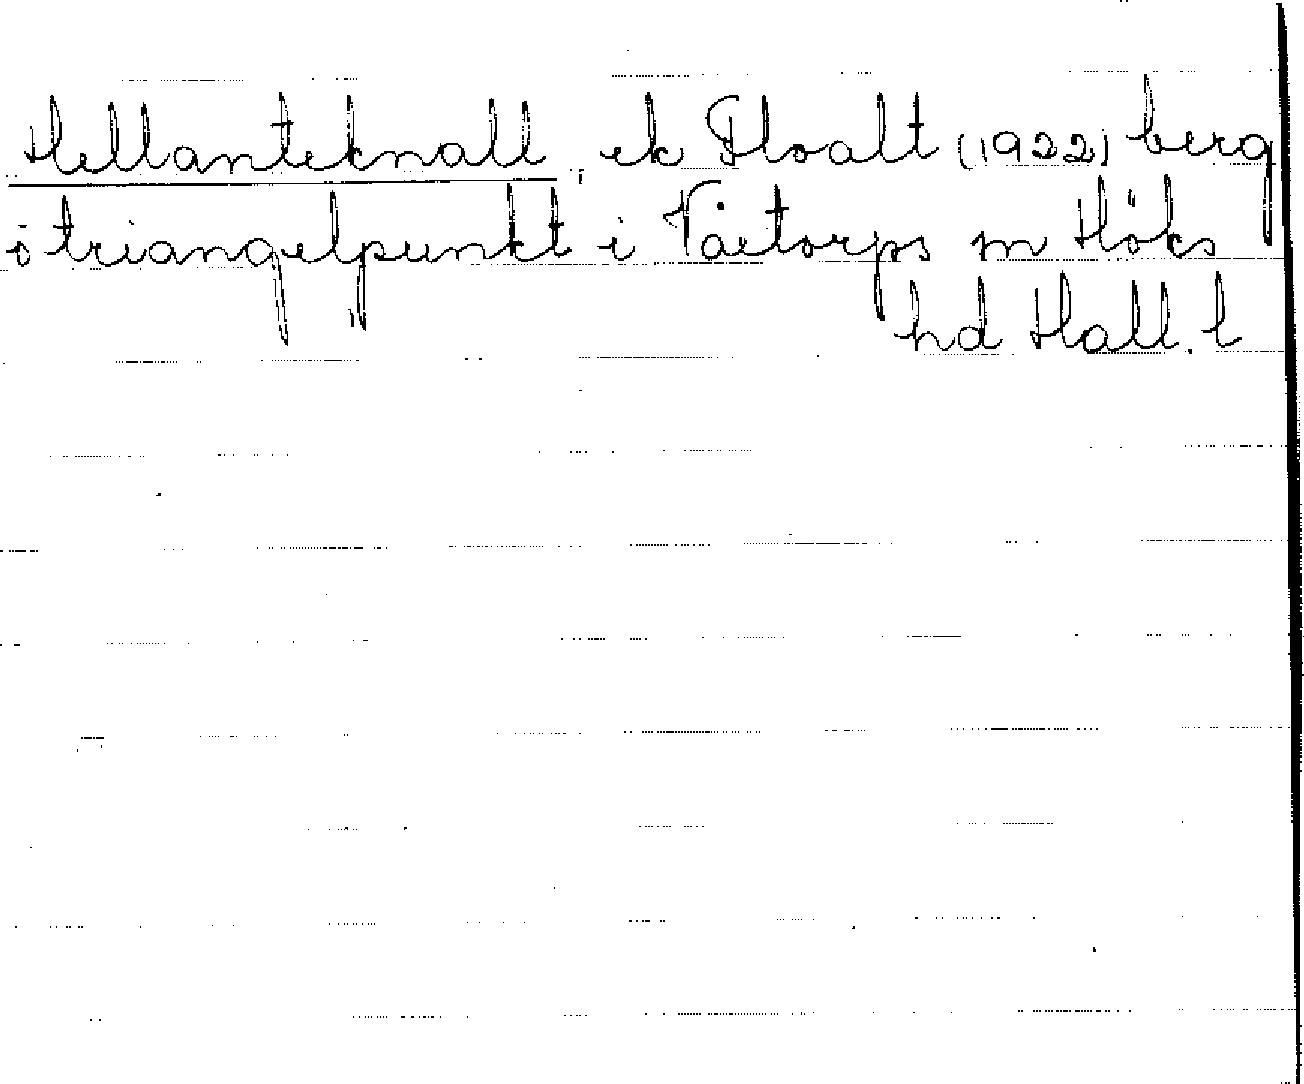 Hellanteknall, ek Hvalt (1922) berg
o triangelpunkt i Våxtorps sn Höks
hd Hall. l